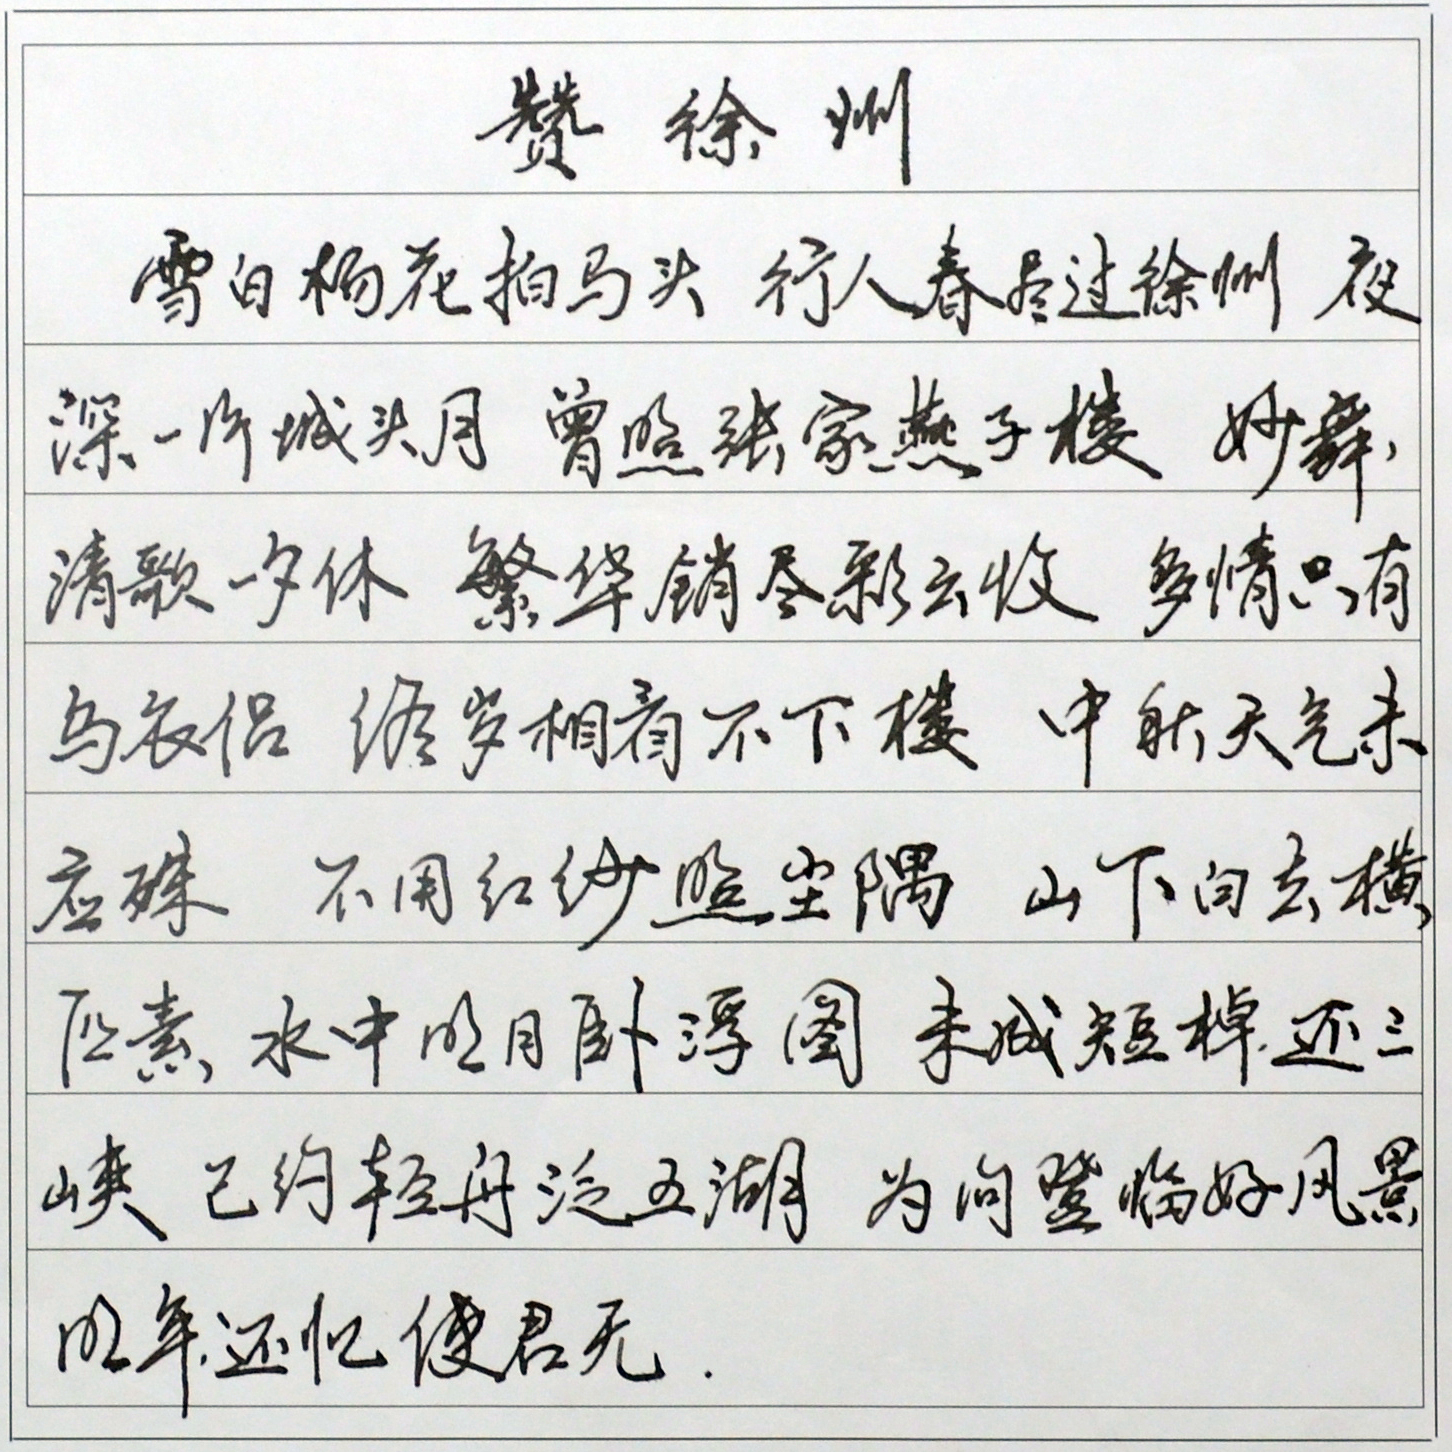 赞徐州
雪白杨花拍马头 行人春尽过徐州 夜
深一片城头月 曾照张家燕子楼 妙舞
清歌一夕休 繁华销尽彩云收 多情只有
乌衣侣 终岁相看不下楼 中秋天气未
应殊 不用红纱照坐隅 山下白云横
匹素 水中明月卧浮图 未成短棹还三
峡 已约轻舟泛五湖 为问登临好风景
明年还忆使君无.